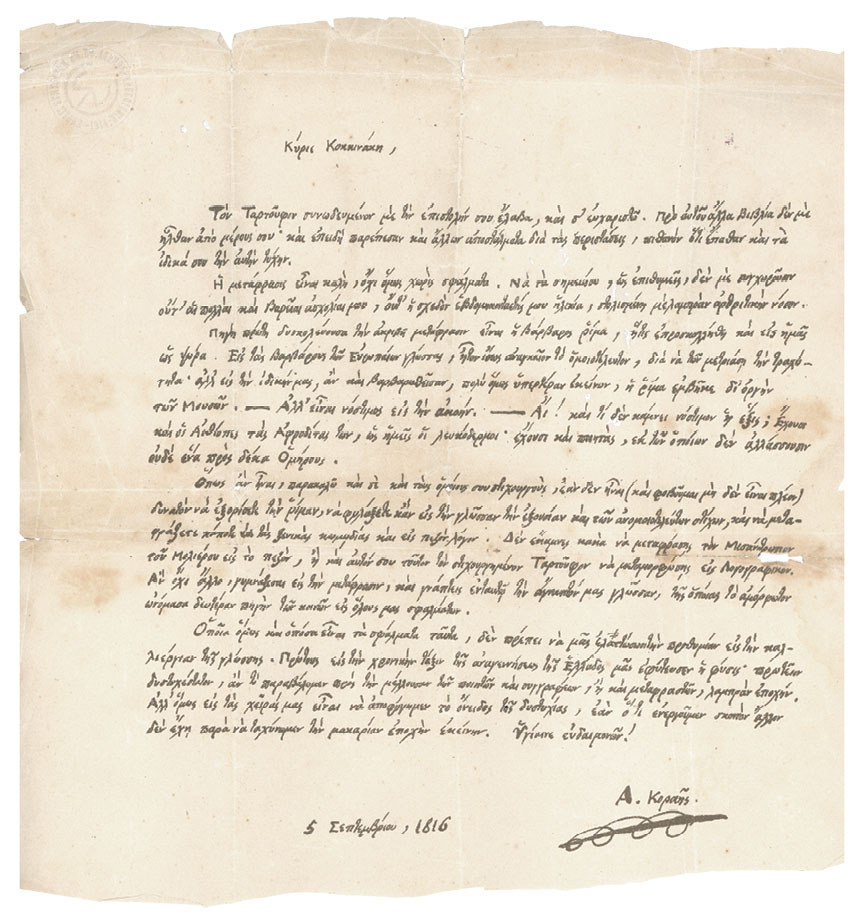 Κύριε Κοκκινάκη,
Τὸν Ταρτοῦφον συνωδευμένον μὲ τὴν ἐπιστολήν σου ἔλαβα, καὶ σ' εὐχαριστῶ. Πρὸ αὐτοῦ ἄλλα βιβλία δὲν μὲ
ἦλθαν ἀπὸ μέρους σου· καὶ ἐπειδὴ παρέπεσαν καὶ ἄλλων ἀποστάλματα διὰ τὰς περιστάσεις, πιθανὸν ὅτι ἔπαθαν καὶ τὰ
ἰδικά σου τὴν αὐτὴν τύχην.
Ἡ μετάφρασις εἶναι καλὴ, ὄχι ὅμως χωρὶς σφάλματα. Νὰ τὰ σημειώσω, ὡς ἐπιθυμεῖς, δὲν μὲ συγχωροῦσιν
οὔτ' αἱ πολλαὶ καὶ βαρεῖαι ἀσχολίαι μου, οὔθ' ἡ σχεδὸν ἑβδομηκονταετής μου ἡλικία, στολισμένη μὲ λαμπρὰν ἀρθριτικὴν νόσον.
Πηγὴ πρώτη δυσκολεύουσα τὴν ἀκριβῆ μετάφρασιν εἶναι ἡ βάρβαρη ῥίμα, ἥτις ἐπροσκολλήθη καὶ εἰς ἡμᾶς
ὡς ψώρα. Εἰς τὰς βαρβάρους τῶν Εὐρωπαίων γλώσσας, ἦτον ἴσως ἀναγκαῖον τὸ ὁμοιοτέλευτον, διὰ νὰ τῶν μετριάσῃ τὴν τραχύ-
τητα· ἀλλ' εἰς τὴν ἰδικήν μας, ἂν καὶ βαρβαρωθεῖσαν, πολὺ ὅμως ὑπερτέραν ἐκείνων, ἡ ῥίμα ἐμβῆκε δι' ὀργὴν
τῶν Μουσῶν. — Ἀλλ' εἶναι νόστιμος εἰς τὴν ἀκοήν. — Αἴ! καὶ τί δὲν κάμνει νόστιμον ἡ ἕξις; Ἔχουσι
καὶ οἱ Αἰθίοπες τὰς Ἀφροδίτας των, ὡς ἡμεῖς οἱ λευκόδερμοι· ἔχουσι καὶ ποιητὰς, ἐκ τῶν ὁποίων δὲν ἀλλάσσουσιν
οὐδὲ ἕνα πρὸς δέκα Ὁμήρους.
Ὅπως ἂν ἦναι, παρακαλῶ καὶ σὲ καὶ τοὺς ὁμοίους σου στιχουργοὺς, ἐὰν δὲν ἦναι (καὶ φοβοῦμαι μὴ δὲν εἶναι πλέον)
δυνατὸν νὰ ἐξορίσετε τὴν ῥίμαν, νὰ φυλάξετε κἂν εἰς τὴν γλῶσσαν τὴν ἐξουσίαν καὶ τῶν ἀνομοιοτελεύτων στίχων, καὶ νὰ μετα-
φράζετε κἄποτε ἐκ τὰς ξενικὰς κωμῳδίας καὶ εἰς πεζὸν λόγον. Δὲν ἔκαμνες κακὰ νὰ μεταφράσῃς τὸν Μισάνθρωπον
τοῦ Μολιέρου εἰς τὸ πεζὸν, ἢ καὶ αὐτόν σου τοῦτον τὸν στιχουργημένον Ταρτοῦφον νὰ μεταμορφώσῃς εἰς Λογογραφικόν.
Ἂν ὄχι ἄλλο, γυμνάζεσαι εἰς τὴν μετάφρασιν, καὶ γράπτεις ἐνταυτῷ τὴν ἀγαπητήν μας γλῶσσαν, τῆς ὁποίας τὸ ἀμόρφωτον
ὠνόμασα δευτέραν πηγὴν τῶν κοινῶν εἰς ὅλους μας σφαλμάτων.
Ὁποῖα ὅμως καὶ ὁπόσα εἶναι τὰ σφάλματα ταῦτα, δὲν πρέπει νὰ μᾶς ἐλαττώσωσι τὴν προθυμίαν εἰς τὴν καλ-
λιέργειαν τῆς γλώσσης. Πρώτους εἰς τὴν χρονικὴν τάξιν τῆς ἀναγεννήσεως τῆς Ἑλλάδος μᾶς ἐφύτευσεν ἡ φύσις· πρωτεῖον
δυστυχέστατον, ἂν τὸ παραβάλωμεν πρὸς τὴν μέλλουσαν τῶν ποιητῶν καὶ συγγραφέων, ἢ καὶ μεταφραστῶν, λαμπρὰν ἐποχήν.
Ἀλλ' ὅμως εἰς τὰς χεῖράς μας εἶναι νὰ ἀποφύγωμεν τὸ ὄνειδος τῆς δυστυχίας, ἐὰν ὅ,τι ἐνεργοῦμεν σκοπὸν ἄλλον
δὲν ἔχῃ παρὰ νὰ ταχύνωμεν τὴν μακαρίαν ἐποχὴν ἐκείνην. Ὑγίαινε εὐδαιμονῶν!
Α. Κοραῆς.
5 Σεπτεμβρίου, 1816